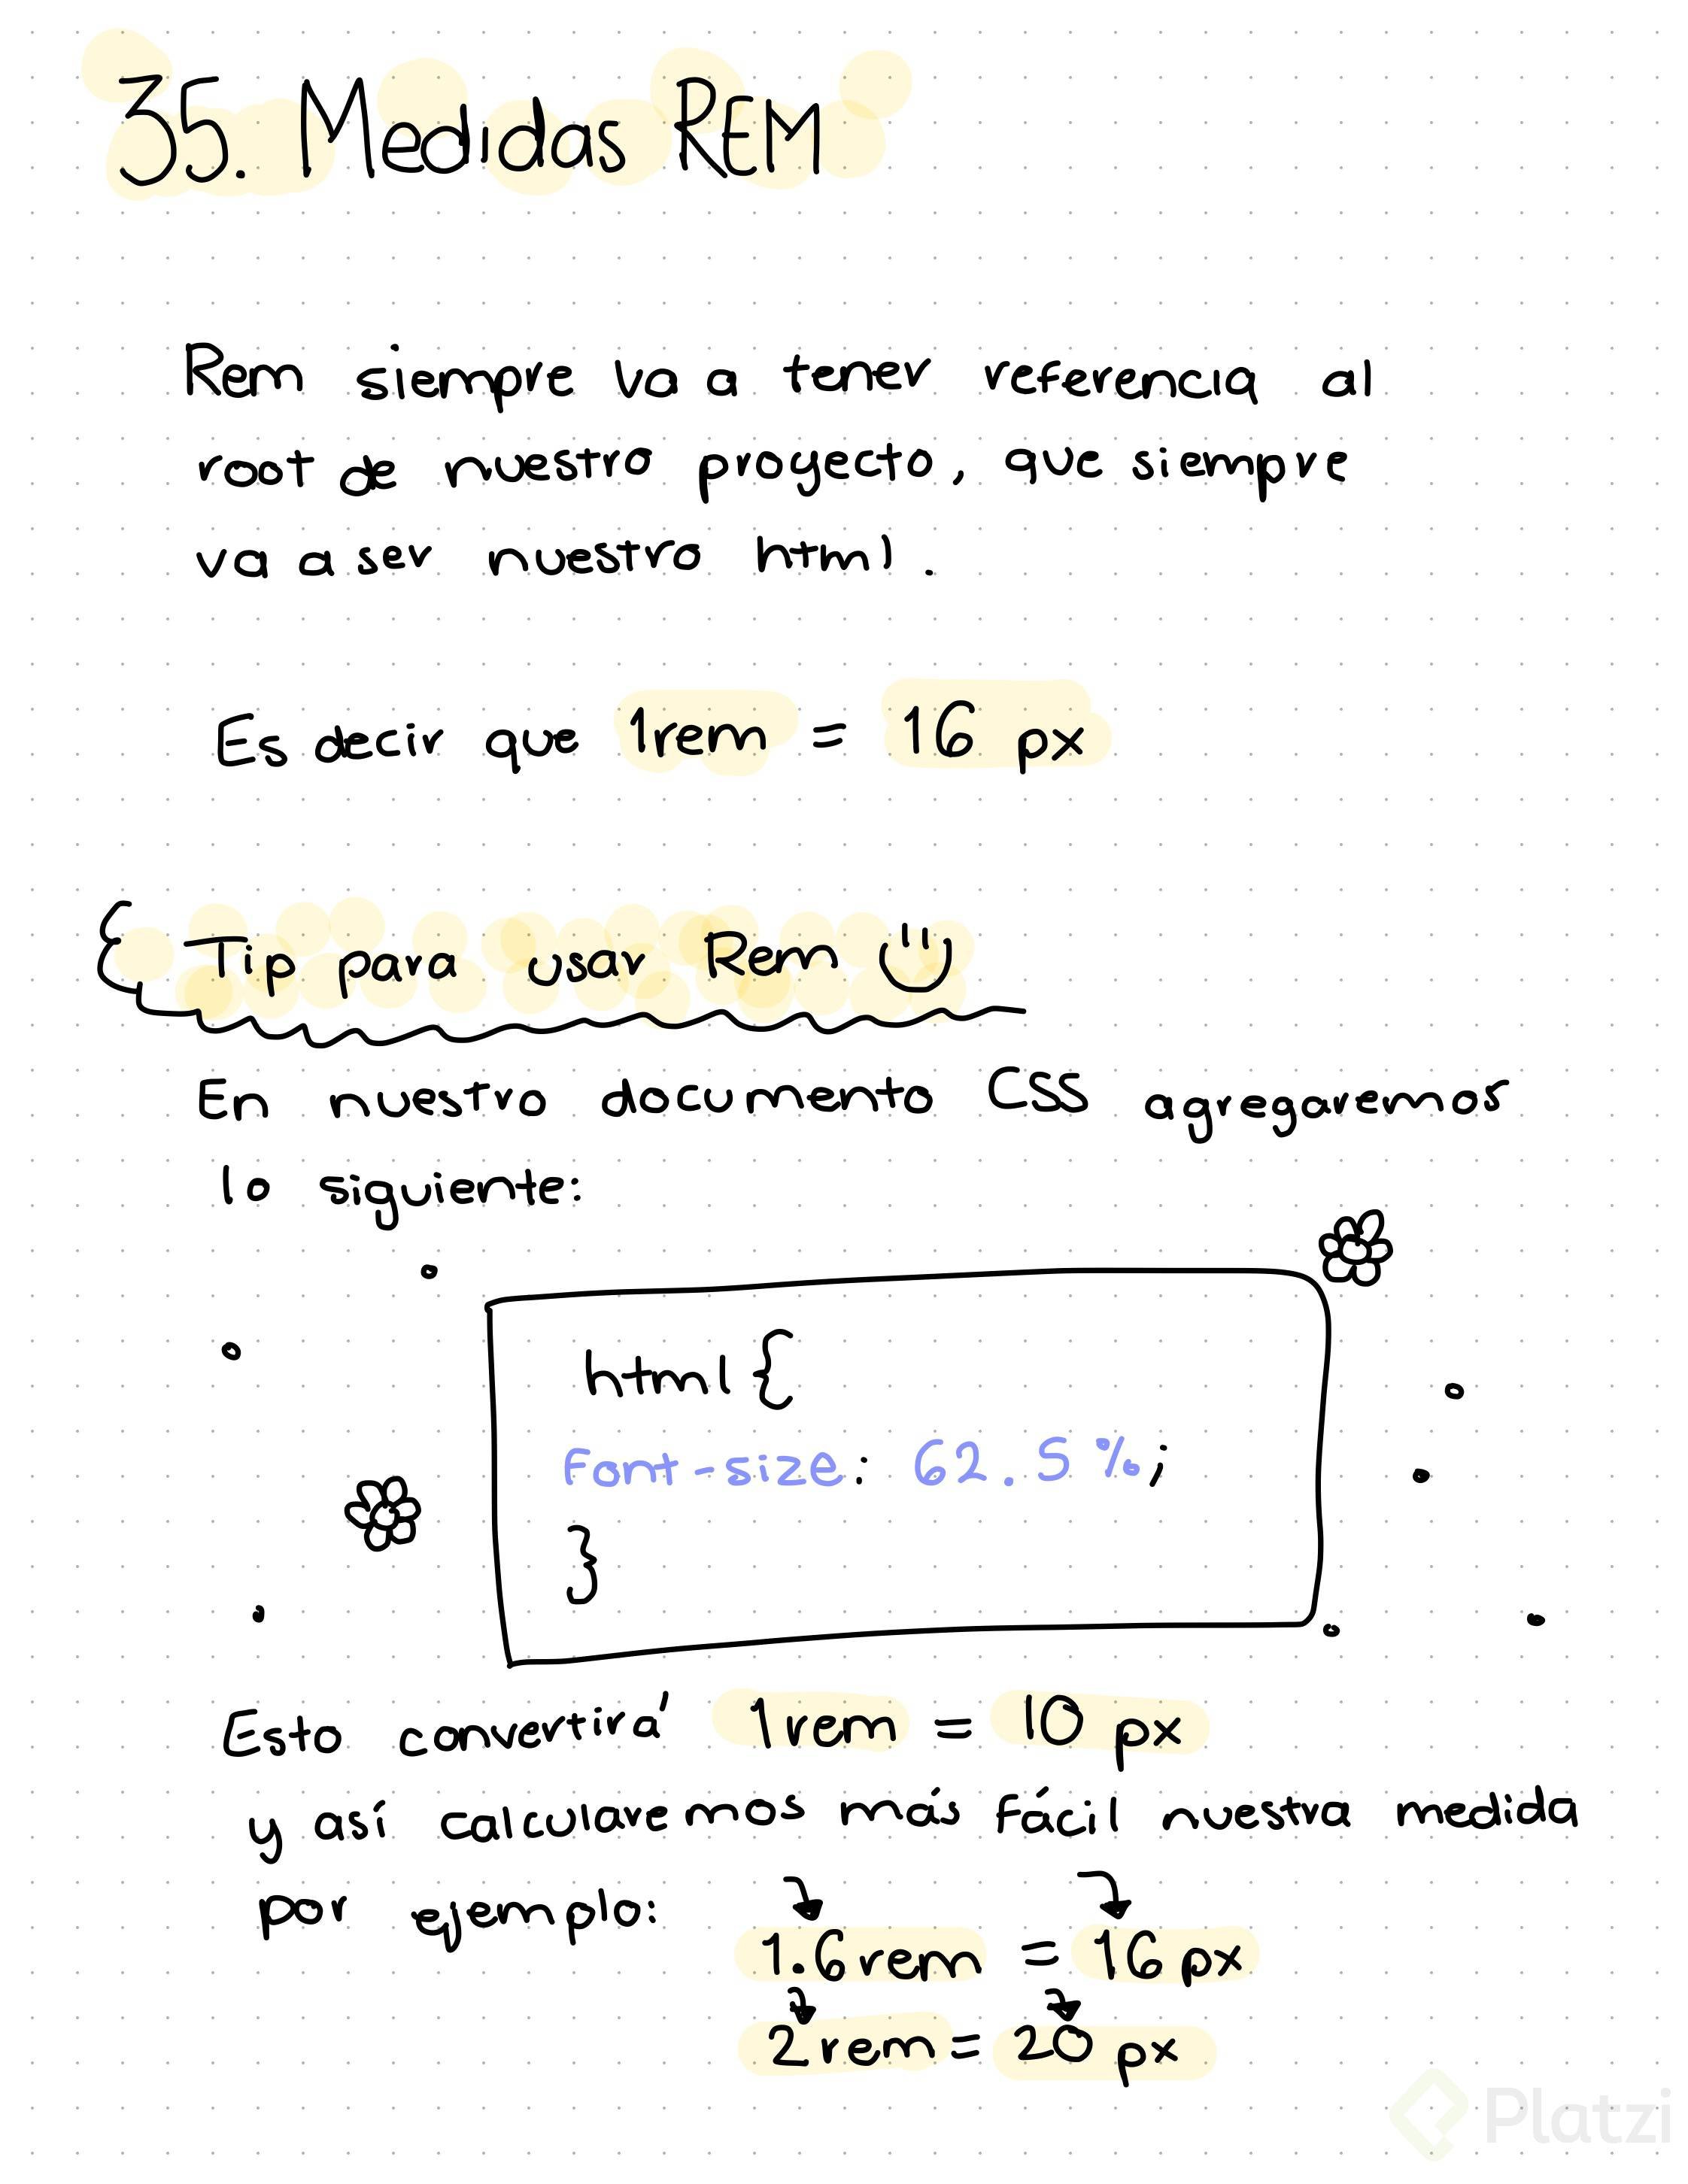 35. Medidas REM
Rem siempre va a tener referencia al
root de nuestro proyecto, que siempre
va a ser nuestro html.
Es decir que 1rem = 16 px
Tip para usar Rem
En nuestro documento CSS agregaremos
lo siguiente:
html {
Font-size: 62.5%;
}
Esto convertirá 1rem = 10 px
y así calcularemos más fácil nuestra medida
por ejemplo:
1.6rem = 16px
2rem = 20 px
Platzi